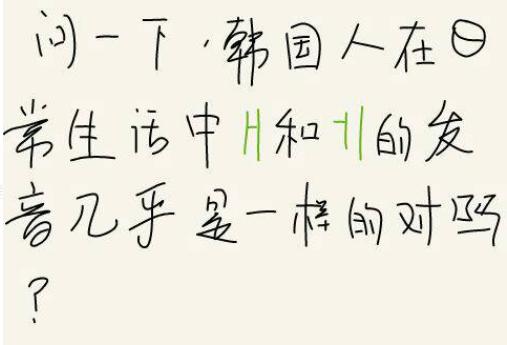 问一下,韩国人在日
常生活中ㅐ和ㅔ的发
音几乎是一样的对吗
?